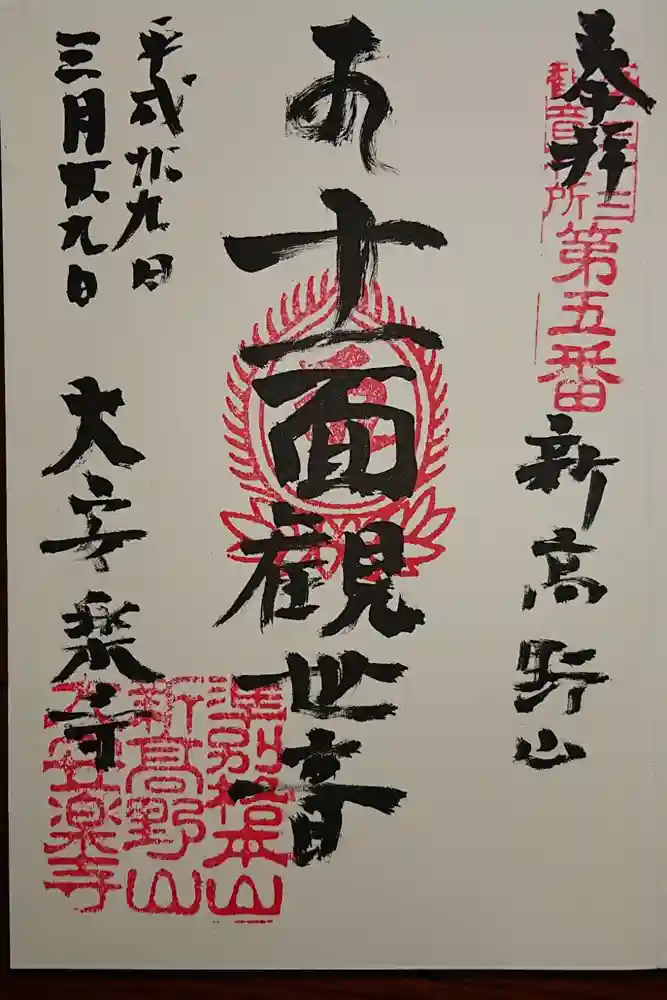 奉拝
觀音札所
第五番
新高野山
十一面觀世音
平成廿九日
三月廿九日
大安楽寺
準別格本山
新高野山
大安楽寺